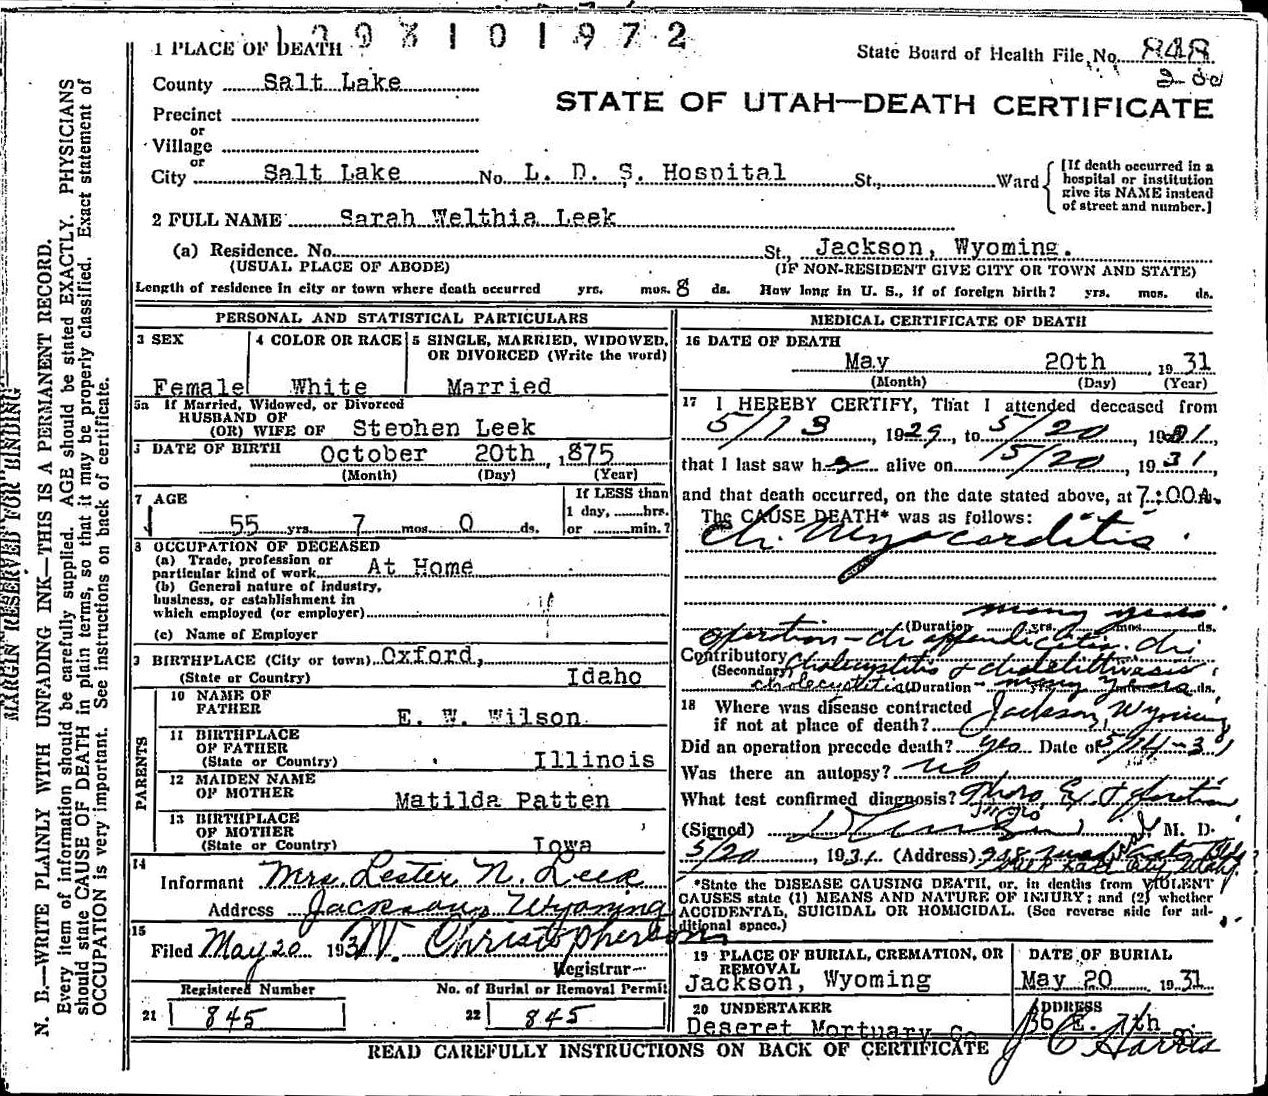 1 PLACE OF DEATH
State Board of Health File No. 848
County Salt Lake
STATE OF UTAH—DEATH CERTIFICATE
Precinct
or
Village
or
City Salt Lake No. L. D. S. Hospital St., Ward
[If death occurred in a
hospital or institution
give its NAME instead
of street and number.]
2 FULL NAME Sarah Welthia Leek
(a) Residence. No. St., Jackson, Wyoming.
(USUAL PLACE OF ABODE) (IF NON-RESIDENT GIVE CITY OR TOWN AND STATE)
Length of residence in city or town where death occurred yrs. mos. 8 ds. How long in U. S., if of foreign birth? yrs. mos. ds.
PERSONAL AND STATISTICAL PARTICULARS
3 SEX
Female
4 COLOR OR RACE
White
5 SINGLE, MARRIED, WIDOWED,
OR DIVORCED (Write the word)
Married
5a If Married, Widowed, or Divorced
HUSBAND OF
(OR) WIFE OF Stephen Leek
DATE OF BIRTH
October 20th, 1875
(Month) (Day) (Year)
7 AGE
55 yrs. 7 mos. 0 ds.
If LESS than
1 day, hrs.
or min.?
8 OCCUPATION OF DECEASED
(a) Trade, profession or
particular kind of work At Home
(b) General nature of industry,
business, or establishment in
which employed (or employer)
(c) Name of Employer
BIRTHPLACE (City or town) Oxford,
(State or Country) Idaho
PARENTS
10 NAME OF
FATHER
E. W. Wilson
11 BIRTHPLACE
OF FATHER
(State or Country) Illinois
12 MAIDEN NAME
OF MOTHER
Matilda Patten
13 BIRTHPLACE
OF MOTHER
(State or Country) Iowa
14
Informant Mrs. Lester N. Leek
Address Jackson, Wyoming
15
Filed May 20 1931 W. Christopherson
Registrar
Registered Number No. of Burial or Removal Permit
21 845 22 845
MEDICAL CERTIFICATE OF DEATH
16 DATE OF DEATH
May 20th, 1931
(Month) (Day) (Year)
17 I HEREBY CERTIFY, That I attended deceased from
5/13, 1929, to 5/20, 1931,
that I last saw h alive on 5/20, 1931,
and that death occurred, on the date stated above, at 7:00A.
The CAUSE DEATH* was as follows:
Ch. Myocarditis
many years
(Duration yrs. mos. ds.
operation - ch appendicitis. ch
Contributory cholecystitis & cholelithiasis
(Secondary)
cholecystitis (Duration many years ds.
18 Where was disease contracted
if not at place of death? Jackson, Wyoming
Did an operation precede death? yes Date of 5/14-31
Was there an autopsy? no
What test confirmed diagnosis?
(Signed) M. D.
5/20, 1931 (Address)
*State the DISEASE CAUSING DEATH, or, in deaths from VIOLENT
CAUSES state (1) MEANS AND NATURE OF INJURY; and (2) whether
ACCIDENTAL, SUICIDAL OR HOMICIDAL. (See reverse side for ad-
ditional space.)
19 PLACE OF BURIAL, CREMATION, OR
REMOVAL
Jackson, Wyoming
DATE OF BURIAL
May 20 1931
20 UNDERTAKER
Deseret Mortuary Co
ADDRESS
36 E. 7th
J C Harris
READ CAREFULLY INSTRUCTIONS ON BACK OF CERTIFICATE
MARGIN RESERVED FOR BINDING
N. B.—WRITE PLAINLY WITH UNFADING INK—THIS IS A PERMANENT RECORD.
Every item of information should be carefully supplied. AGE should be stated EXACTLY. PHYSICIANS
should state CAUSE OF DEATH in plain terms, so that it may be properly classified. Exact statement of
OCCUPATION is very important. See instructions on back of certificate.